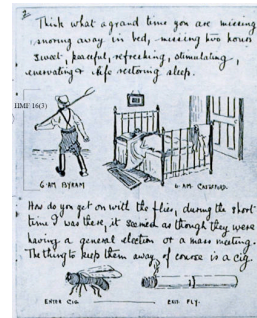 2
Think what a grand time you are missing
snoring away in bed, missing two hours
sweet, peaceful, refreshing, stimulating,
enervating & life restoring sleep.
HMF 16(3)
6 AM BYRAM
6. AM. CATSFORD.
How do you get on with the flies, during the short
time I was there, it seemed as though they were
having a general election or a mass meeting.
The thing to keep them away of course is a cig.
ENTER CIG.
EXIT. FLY.